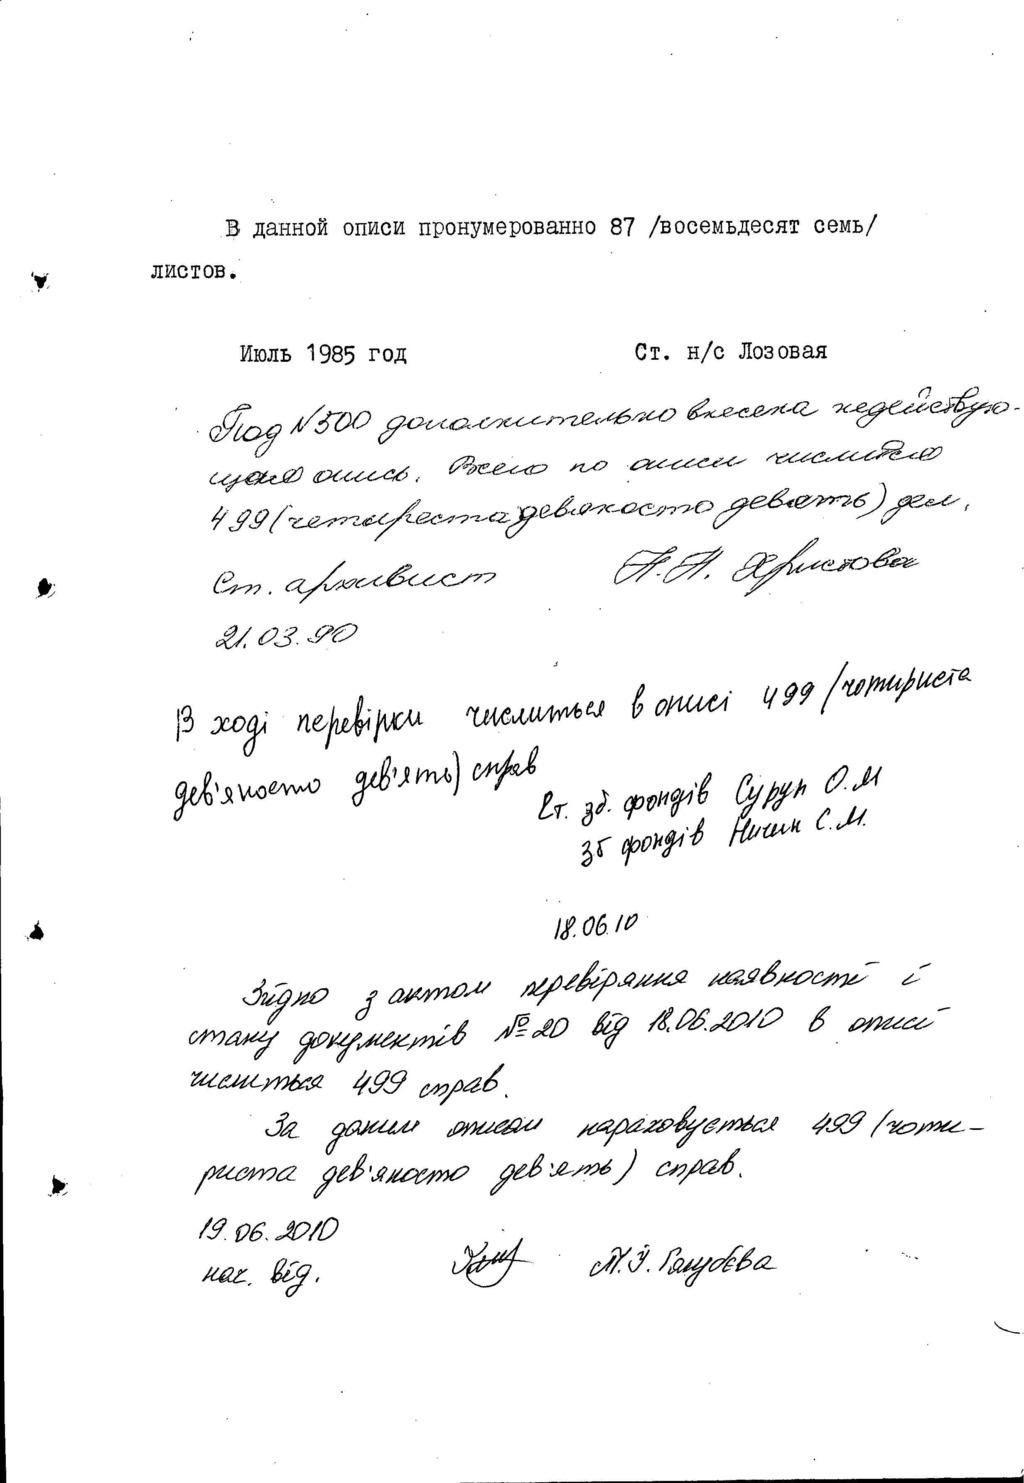 В данной описи пронумерованно 87 /восемьдесят семь/
листов.
Июль 1985 год Ст. н/с Лозовая
Под №500 дополнительно внесена недействую-
щая опись. Всего по описи числится
499 (четыреста девяносто девять) дел.
Ст. архивист Н.Н. Христова
21.03.90
В ході перевірки числиться в описі 499 /чотириста
дев'яносто дев'ять) справ
Ст. зб. фондів Сурун О.М
зб фондів С.М.
18.06.10
Згідно з актом перевіряння наявності і
стану документів №20 від 18.06.2010 в описі
числиться 499 справ.
За даним описом нараховується 499 (чоти-
риста дев'яносто дев'ять) справ.
19.06.2010
нач. від. Голубєва